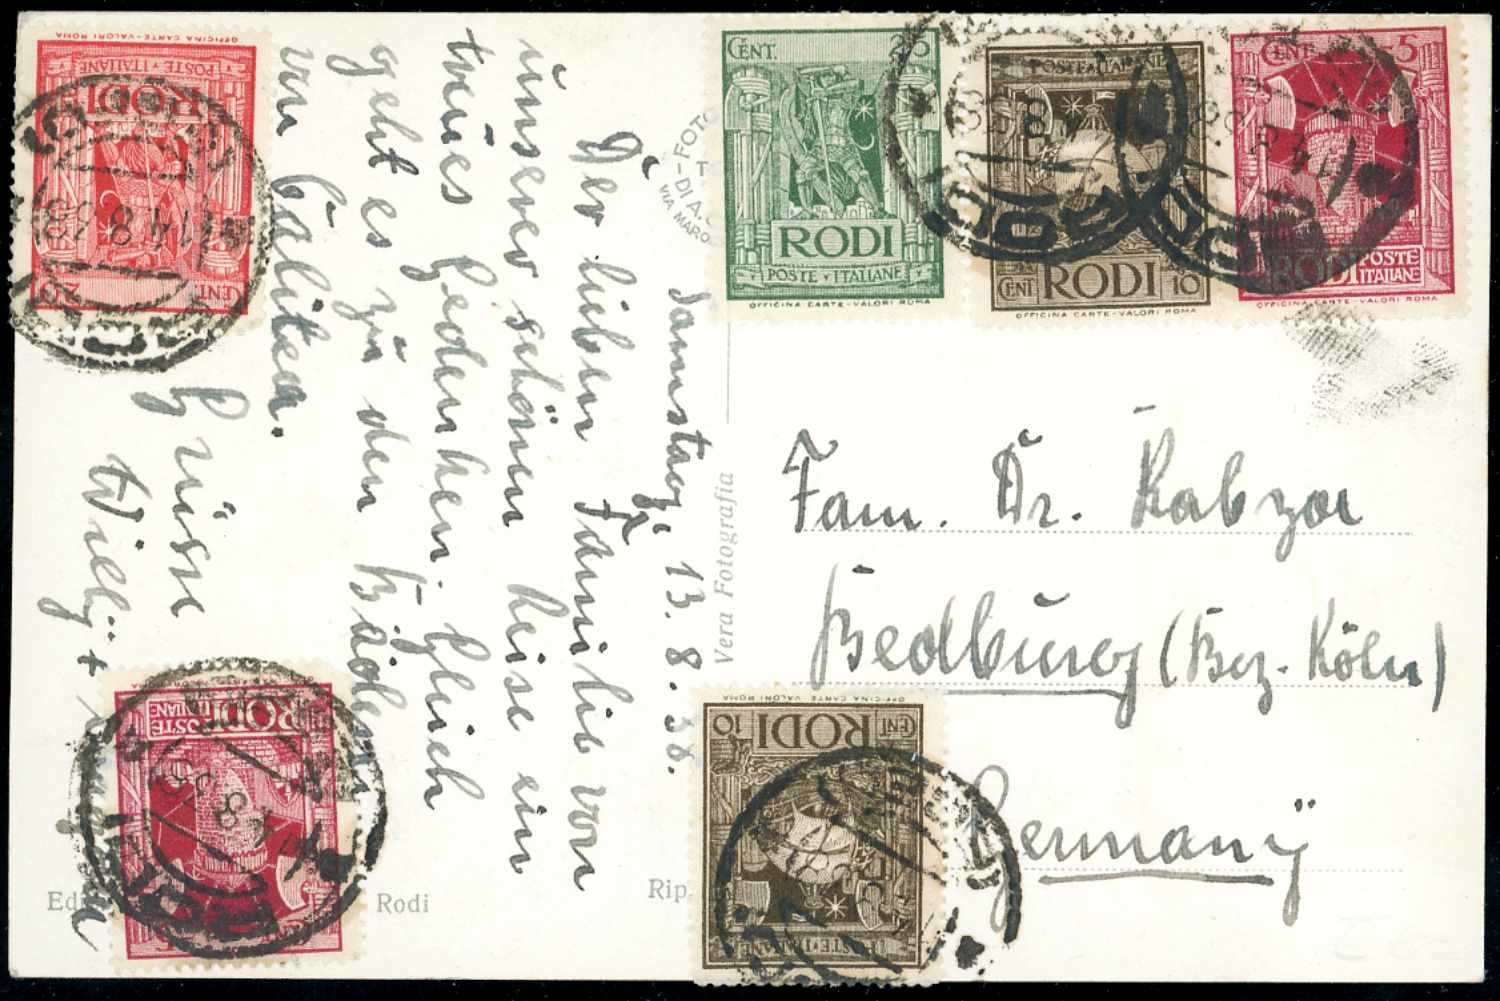 Samstag, 13.8.38.
Der lieben Familie von
unserer schönen Reise ein
treues Gedenken. Gleich
geht es zu den Bädern
von Calitea.
Grüsse
Willy +
Fam. Dr. Kabzar
Bedburg (Bez. Köln)
Germany
Vera Fotografia
Rodi
Rip.
OFFICINA CARTE-VALORI ROMA
POSTE ITALIANE
RODI
CENT
CENT. 25
RODI
POSTE ITALIANE
OFFICINA CARTE-VALORI ROMA
POSTE ITALIANE
CENT RODI 10
OFFICINA CARTE-VALORI ROMA
CENT. 5
RODI POSTE ITALIANE
OFFICINA CARTE-VALORI ROMA
RODI POSTE ITALIANE
OFFICINA CARTE-VALORI ROMA
CENT RODI 10
POSTE ITALIANE
FOTO
DI A.
VIA MARO
14 8 38